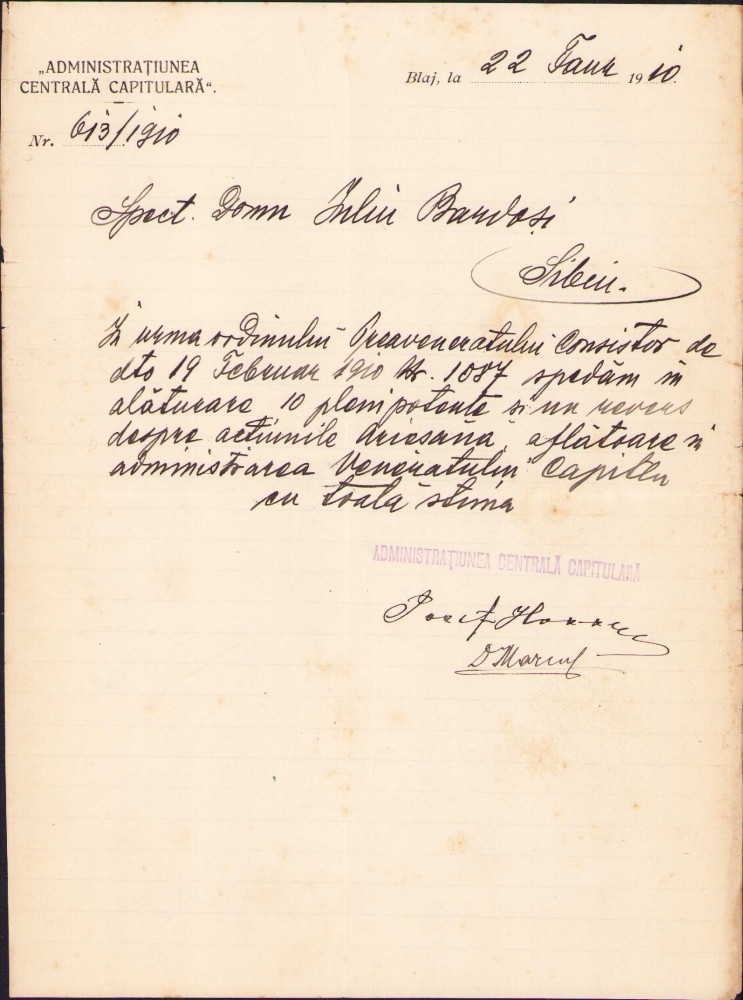 „ADMINISTRAȚIUNEA
CENTRALĂ CAPITULARĂ“.
Blaj, la 22 Faur 1910.
Nr. 613/1910
Spect. Domn Iuliu Bardosi
Sibiu.
In urma ordinului Preaveneratului Consistor de
dto 19 Februar 1910 Nr. 1087 spedăm in
alăturare 10 plenipotente si un revers
despre actiunile Ariesana, aflătoare in
administrarea Veneratului Capitlu
cu toată stima
ADMINISTRAȚIUNEA CENTRALĂ CAPITULARĂ
Iosif